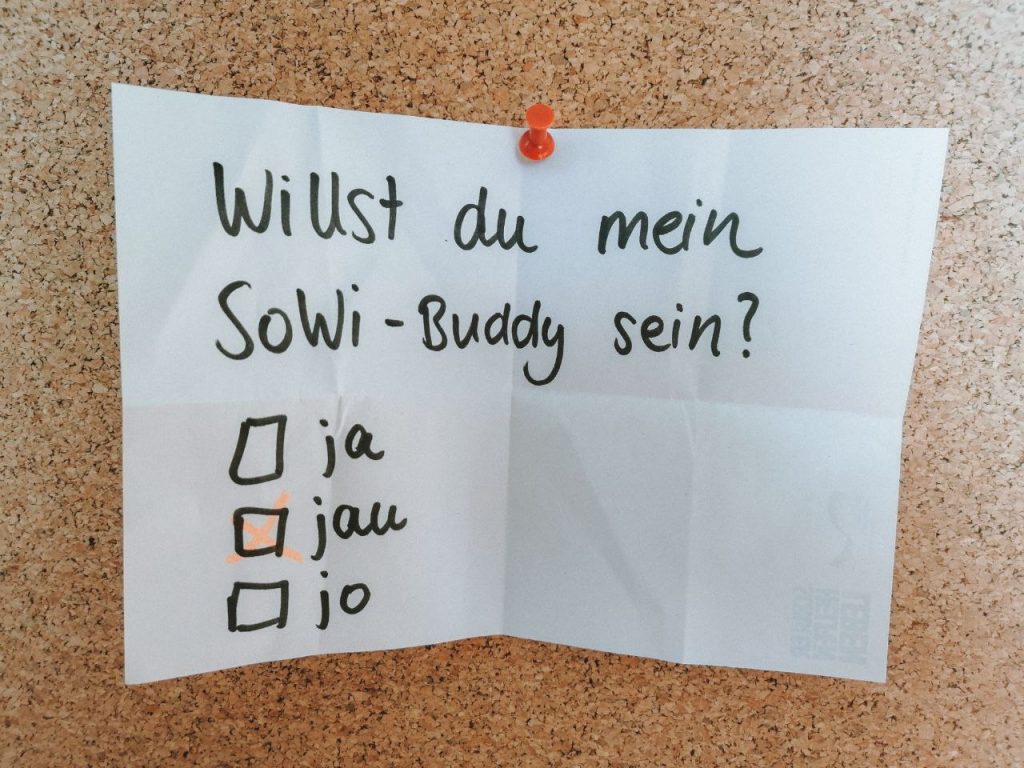 Willst du mein
SoWi-Buddy sein?
ja
jau
jo